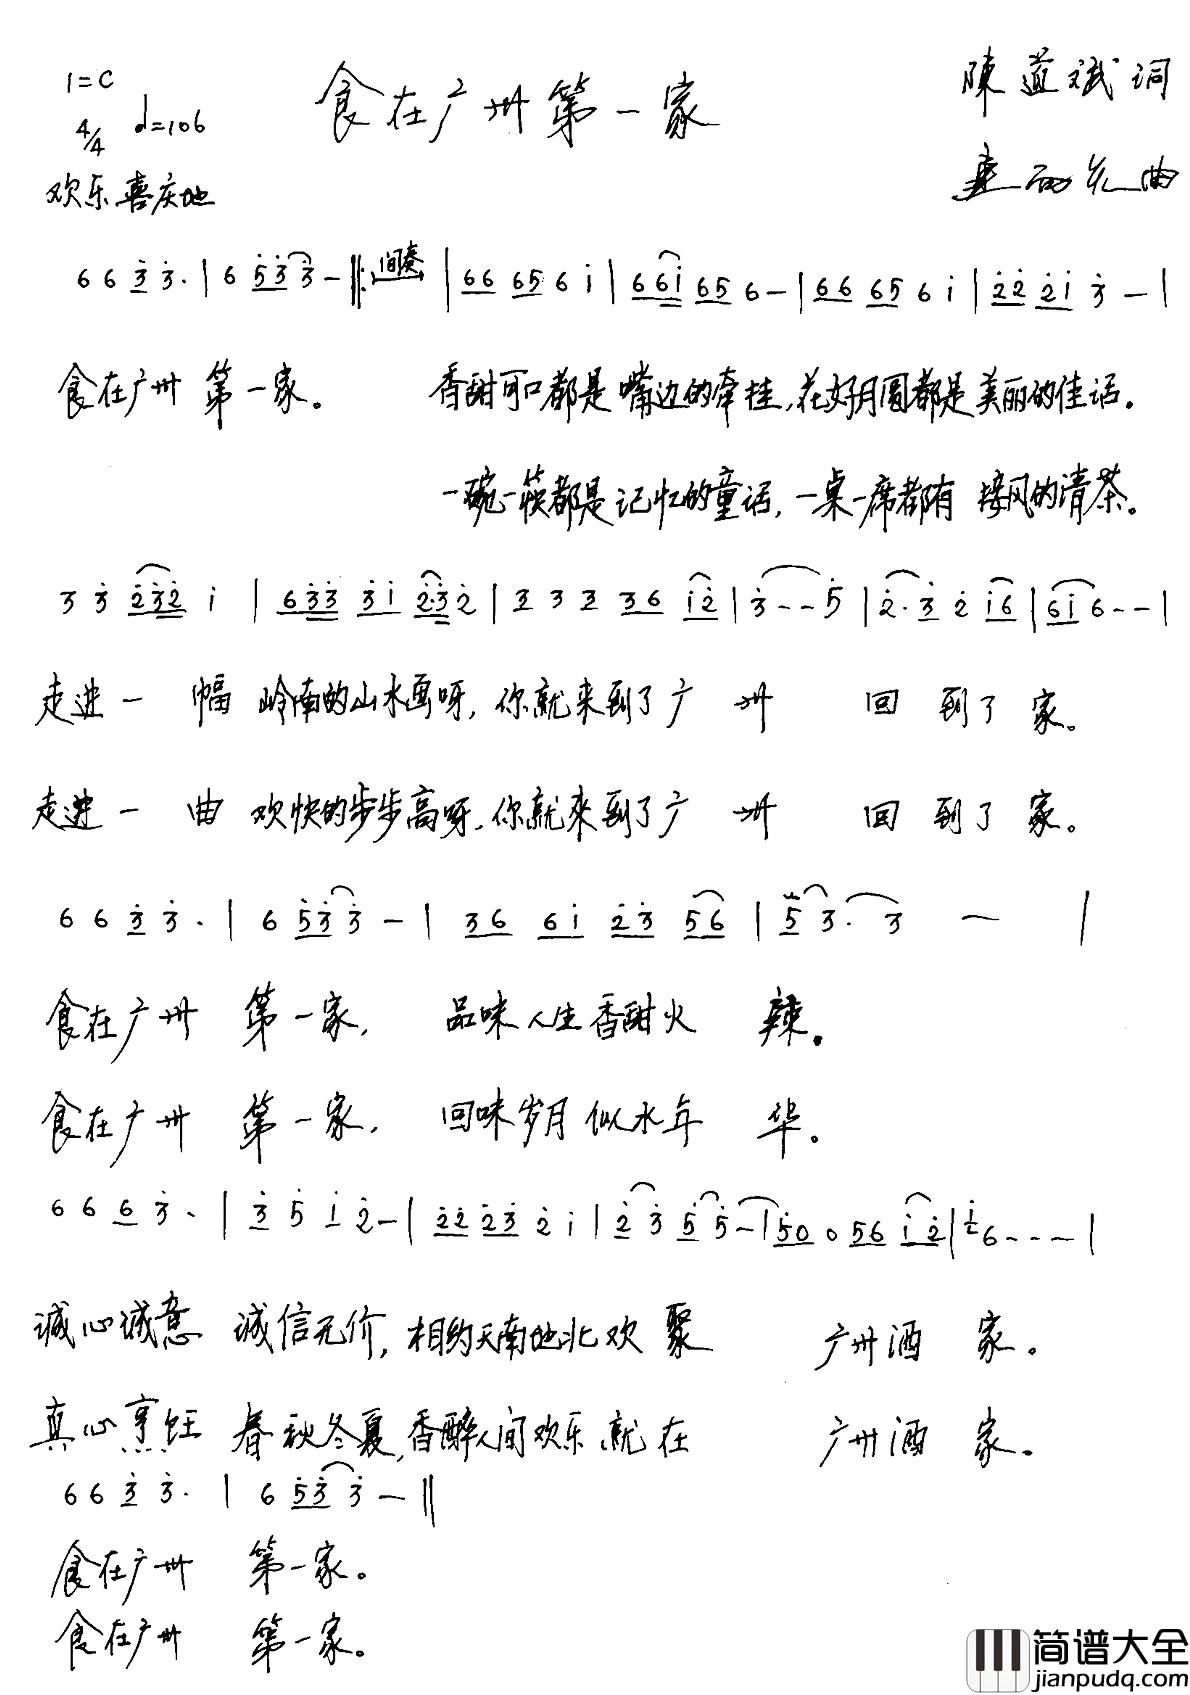 1=C
食在广州第一家
陳道斌词
4/4 ♩=106
欢乐喜庆地
曲
6 6 3̇ 3̇· | 6 5̇3̇3̇ - ‖: 间奏 | 66 65 6 i | 66i 65 6 - | 66 65 6 i | 2̇2̇ 2̇i 3̇ - |
食在广州 第一家。 香甜可口都是嘴边的牵挂,花好月圆都是美丽的佳话。
一碗一筷都是记忆的童话,一桌一席都有接风的清茶。
3 3̇ 2̇3̇2̇ i | 63̇3̇ 3̇i 2̇·3̇2̇ | 3 3 3 36 i2̇ | 3̇ - - 5̇ | 2̇· 3̇ 2̇ i6 | 6i 6 - - |
走进一 幅 岭南的山水画呀,你就来到了广 州 回 到了 家。
走进一 曲 欢快的步步高呀,你就來到了广 州 回 到了 家。
6 6 3̇ 3̇· | 6 5̇3̇ 3̇ - | 36 6i 2̇3̇ 56 | 5̇ 3· 3 - |
食在广州 第一家, 品味人生香甜火 辣。
食在广州 第一家, 回味岁月似水年 华。
6 6 6 3̇· | 3̇ 5̇ i 2̇ - | 2̇2̇ 2̇3̇ 2̇ i | 2̇ 3̇ 5̇ 5̇ - | 5̇0 0 56 i2̇ | 6 - - - |
诚心诚意 诚信无价,相约天南地北欢 聚 广州酒 家。
真心烹饪 春秋冬夏,香醉人间欢乐就在 广州酒 家。
6 6 3̇ 3̇· | 6 5̇3̇ 3̇ - ‖
食在广州 第一家。
食在广州 第一家。
简谱大全
jianpudq.com